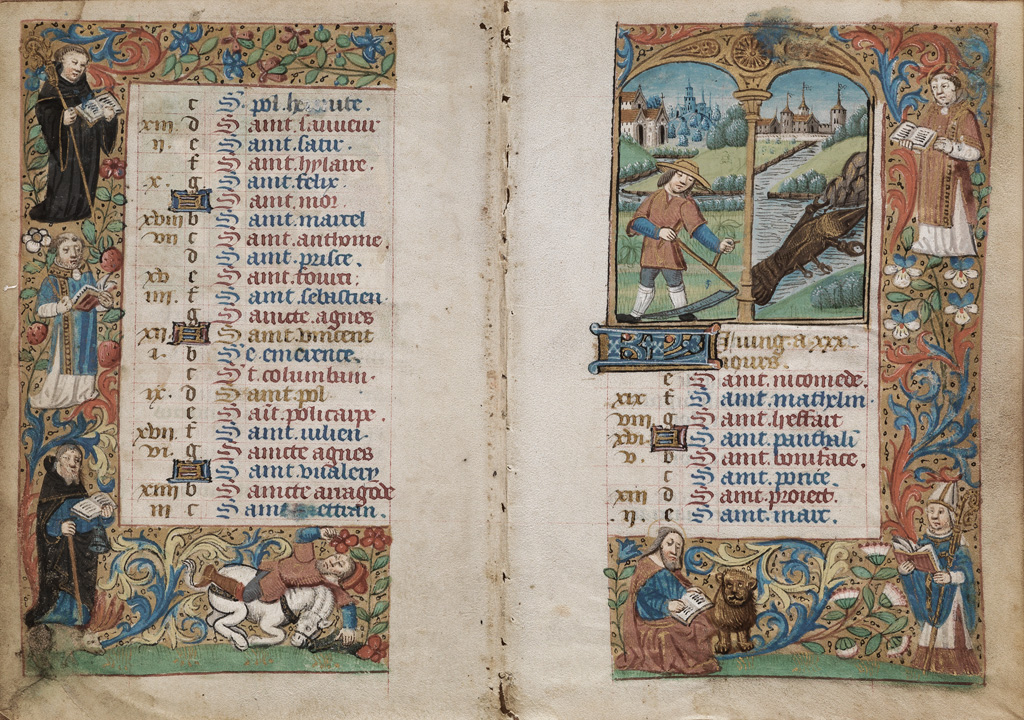 c S. pol. he
xiii. d Saint. sauueur
ii. e Saint. satir.
f Saint. hylaire.
x. g Saint. felix.
A Saint. mor.
xviii b Saint. marcel
vii c Saint. anthoine.
d Saint. prisce.
xv e Saint. fourci.
iiii. f Saint. sebastien.
g Saincte. agnes
xii. A Saint. vincent
i. b Se. emerence.
c St. columbain.
ix. d Saint. pol.
e Sait. policarpe.
xvii. f Saint. iulien.
vi. g Saincte agnes
A Saint. vualery
xiiii b Saincte aragode
iii c Saint
Iuing. a. xxx.
iours.
e Saint. nicomede.
xix f Saint. mathelin.
viii g Saint.
xvi. A Saint. panthali
v. b Saint. boniface.
c Saint. porcie.
xiii d Saint. proiect.
ii. e Saint. marc.